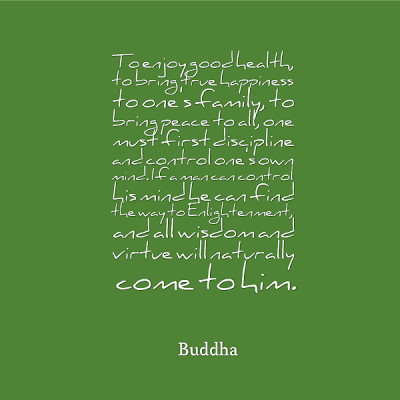 To enjoy good health,
to bring true happiness
to one's family, to
bring peace to all, one
must first discipline
and control one's own
mind. If a man can control
his mind he can find
the way to Enlightenment,
and all wisdom and
virtue will naturally
come to him.
Buddha